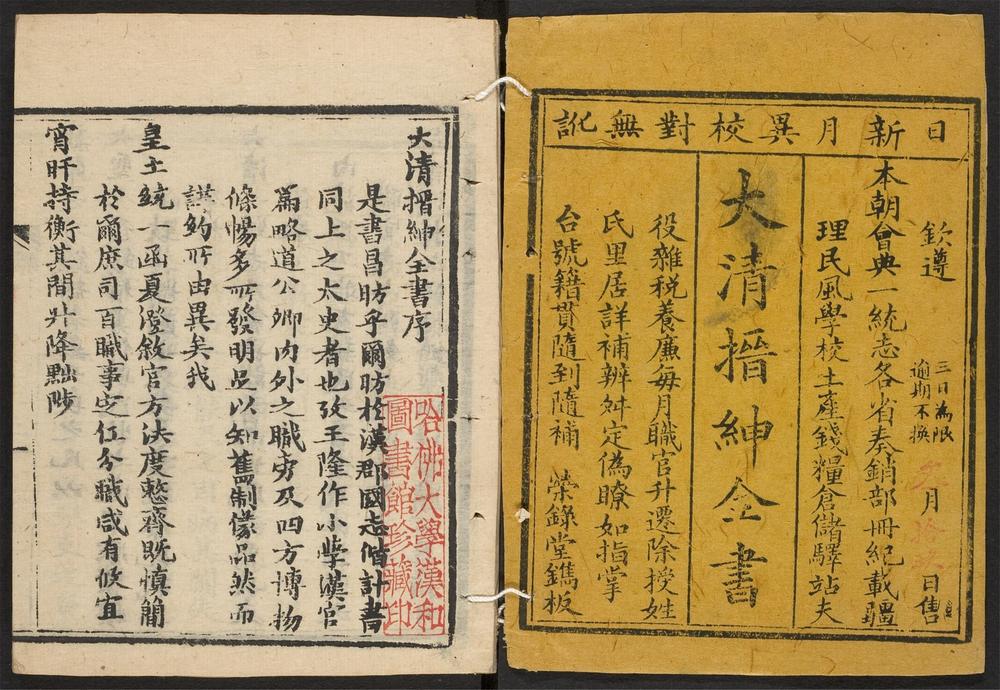 日新月異校對無訛
欽遵
三日為限
逾期不換
月
日售
本朝會典一統志各省奏銷部冊紀載疆
理民風學校土產錢糧倉儲驛站夫
大清搢紳全書
役雜稅養廉每月職官升遷除授姓
氏里居詳補辨舛定偽瞭如指掌
台號籍貫隨到隨補 榮錄堂鐫板
大清搢紳全書序
是書昌昉乎爾昉於漢郡國志偕計書
同上之太史者也攷王隆作小學漢官
篇略道公卿內外之職旁及四方博物
條暢多所發明足以知舊制儀品然而
謹約所由異矣我
皇上統一函夏澄敘官方法度整齊既慎簡
於爾庶司百職事定位分職咸有攸宜
宵旰持衡其間升降黜陟
哈佛大學漢和
圖書館珍藏印